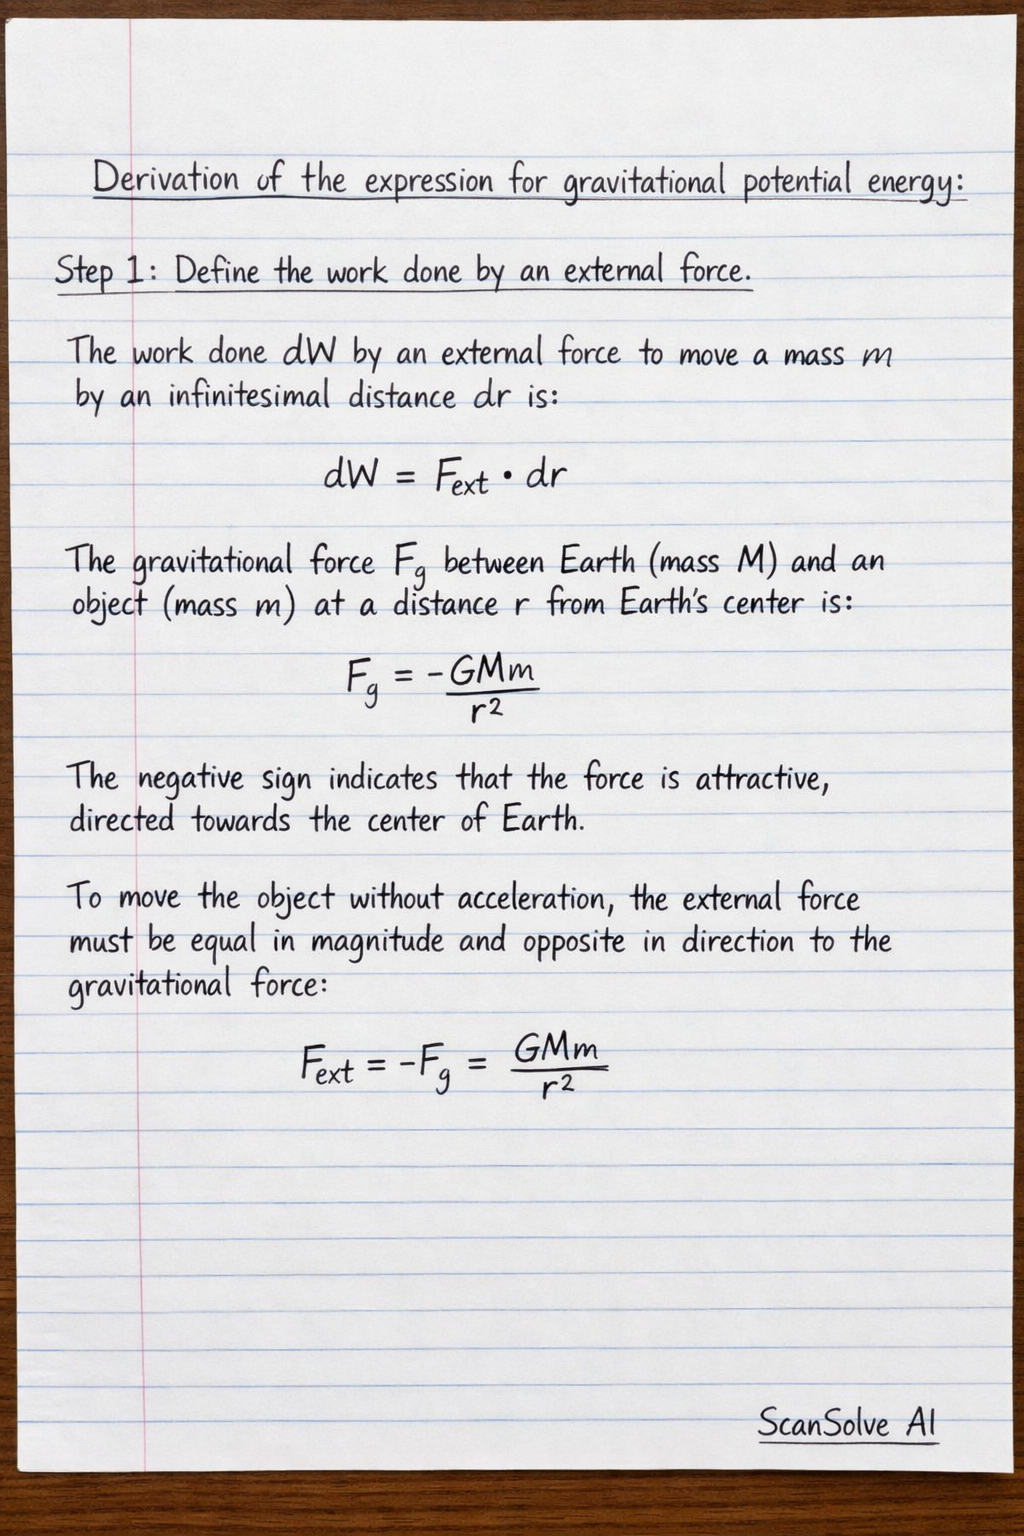 Derivation of the expression for gravitational potential energy:
Step 1: Define the work done by an external force.
The work done dW by an external force to move a mass m
by an infinitesimal distance dr is:
dW = F_ext · dr
The gravitational force F_g between Earth (mass M) and an
object (mass m) at a distance r from Earth's center is:
F_g = -GMm / r²
The negative sign indicates that the force is attractive,
directed towards the center of Earth.
To move the object without acceleration, the external force
must be equal in magnitude and opposite in direction to the
gravitational force:
F_ext = -F_g = GMm / r²
ScanSolve AI